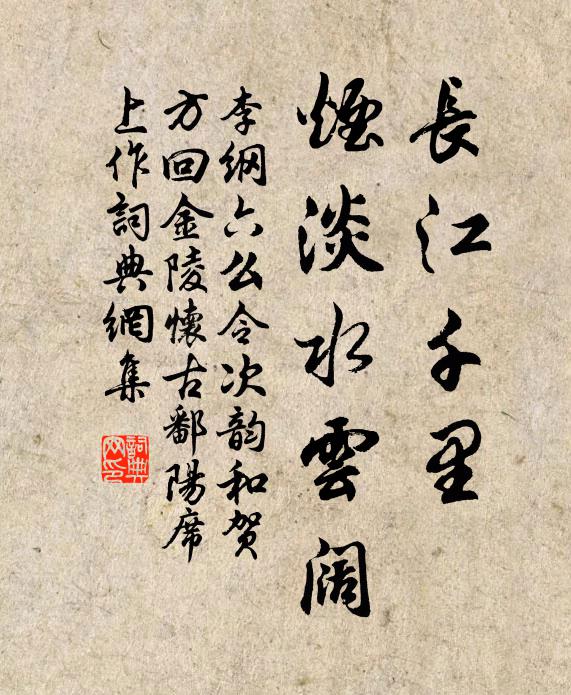 長江千里
煙淡水雲闊
李綱六么令次韵和贺
方回金陵懷古鄱陽席
上作詞典網集
詞典
网印